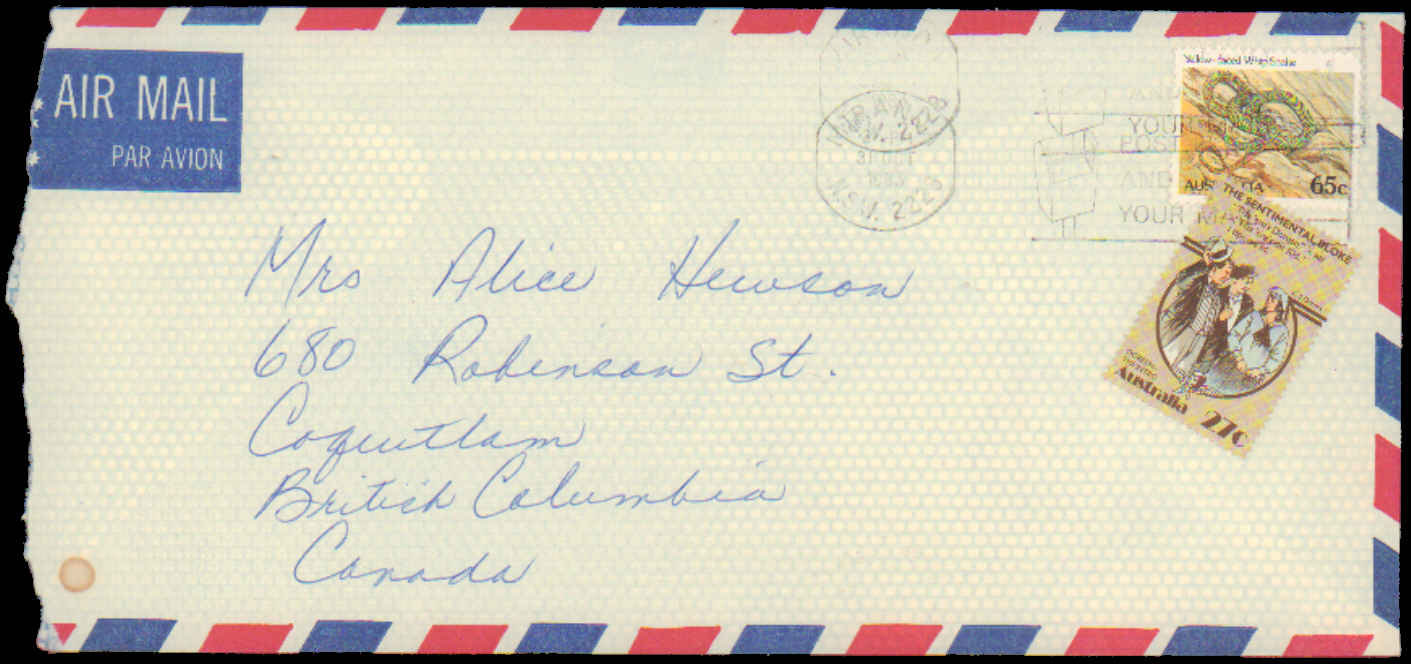 AIR MAIL
PAR AVION
MIRANDA
N.S.W. 2228
31 OCT
1983
N.S.W. 2228
AND
YOUR
POST
AND
YOUR MAIL
Yellow-faced Whip Snake
AUSTRALIA 65c
THE SENTIMENTAL BLOKE
Australia 27c
Mrs Alice Hewson
680 Robinson St.
Coquitlam
British Columbia
Canada